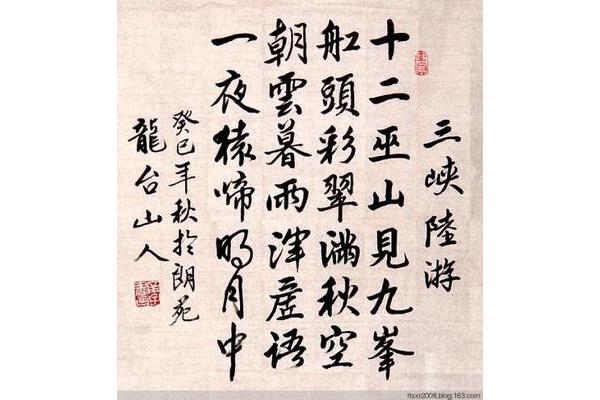 三峽陸游
十二巫山見九峯
船頭彩翠滿秋空
朝雲暮雨渾虛語
一夜猿啼明月中
癸巳年秋於朗苑
龍台山人
ltsxz2008.blog.163.com